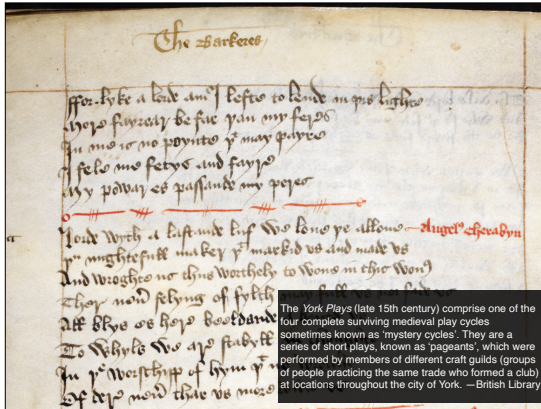 The Barkeres
ffor lyke a lorde am I lefte to lende in þis lighte
More fayrear be far þan my feres
In me is no poynte þat may payre
I fele me fetys and fayre
My powar es passande my peres
Lorde wyth a lastande luf we loue þe allone
Angels cherabyn
þou mightefull maker þat markid vs and made vs
And wroghte vs thus worthely to wone in this wone
Ther neuer felyng of fylth may full vs nor fade vs
All blys es here beeldande
To whyls we are stabyll
In þe worschipp of hym
Of dere neuer thar vs more
The York Plays (late 15th century) comprise one of the
four complete surviving medieval play cycles
sometimes known as 'mystery cycles'. They are a
series of short plays, known as 'pageants', which were
performed by members of different craft guilds (groups
of people practicing the same trade who formed a club)
at locations throughout the city of York. —British Library